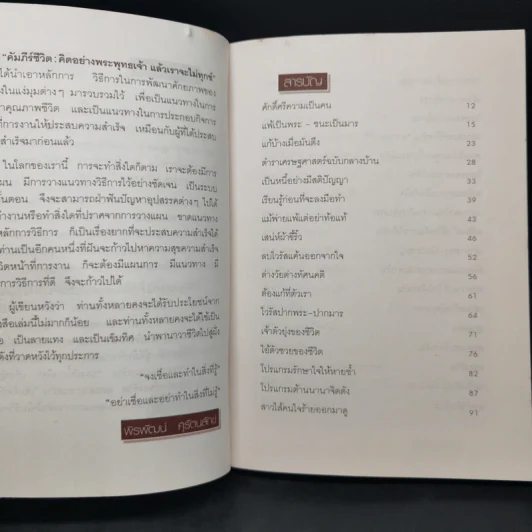 "คัมภีร์ชีวิต : คิดอย่างพระพุทธเจ้า แล้วเราจะไม่ทุกข์"
ได้นำเอาหลักการ วิธีการในการพัฒนาศักยภาพของ
ในแง่มุมต่างๆ มารวบรวมไว้ เพื่อเป็นแนวทางในการ
คุณภาพชีวิต และเป็นแนวทางในการประกอบกิจการ
ที่การงานให้ประสบความสำเร็จ เหมือนกับผู้ที่ได้ประสบ
สำเร็จมาก่อนแล้ว
ในโลกของเรานี้ การจะทำสิ่งใดก็ตาม เราจะต้องมีการ
แผน มีการวางแนวทางวิธีการไว้อย่างชัดเจน เป็นระบบ
ขั้นตอน จึงจะสามารถฝ่าฟันปัญหาอุปสรรคต่างๆ ไปได้
ทำงานหรือทำสิ่งใดที่ปราศจากการวางแผน ขาดแนวทาง
หลักการวิธีการ ก็เป็นเรื่องยากที่จะประสบความสำเร็จได้
ท่านเป็นอีกคนหนึ่งที่ฝันจะก้าวไปหาความสุขความสำเร็จ
หน้าที่การงาน ก็จะต้องมีแผนการ มีแนวทาง มี
วิธีการที่ดี จึงจะก้าวไปได้
ผู้เขียนหวังว่า ท่านทั้งหลายคงจะได้รับประโยชน์จาก
เล่มนี้ไม่มากก็น้อย และท่านทั้งหลายคงจะได้ใช้เป็น
เป็นลายแทง และเป็นเข็มทิศ นำพานาวาชีวิตไปสู่ฝั่ง
ดังที่วาดหวังไว้ทุกประการ
"จงเชื่อและทำในสิ่งที่รู้"
"อย่าเชื่อและอย่าทำในสิ่งที่ไม่รู้"
พีรพัฒน์ ศุรัตนลักข์
สารบัญ
ศักดิ์ศรีความเป็นคน 12
แพ้เป็นพระ - ชนะเป็นมาร 15
แก้บ้างเมื่อมันตึง 23
ตำราเศรษฐศาสตร์ฉบับกลางบ้าน 28
เป็นหนี้อย่างมีสติปัญญา 53
เรียนรู้ก่อนที่จะลงมือทำ 39
แม้พ่ายแพ้แต่อย่าท้อแท้ 43
เสน่ห์ผ้าขี้ริ้ว 46
ลบไวรัสแค้นออกจากใจ 52
ต่างวัยต่างทัศนคติ 56
ต้องแก้ที่ตัวเรา 61
ไวรัสปากพระ-ปากมาร 64
เจ้าตัวยุ่งของชีวิต 71
ไอ้ตัวซวยของชีวิต 76
โปรแกรมรักษาใจให้หายช้ำ 82
โปรแกรมต้านนานาจิตตัง 87
สาวไส้คนใจร้ายออกมาดู 91